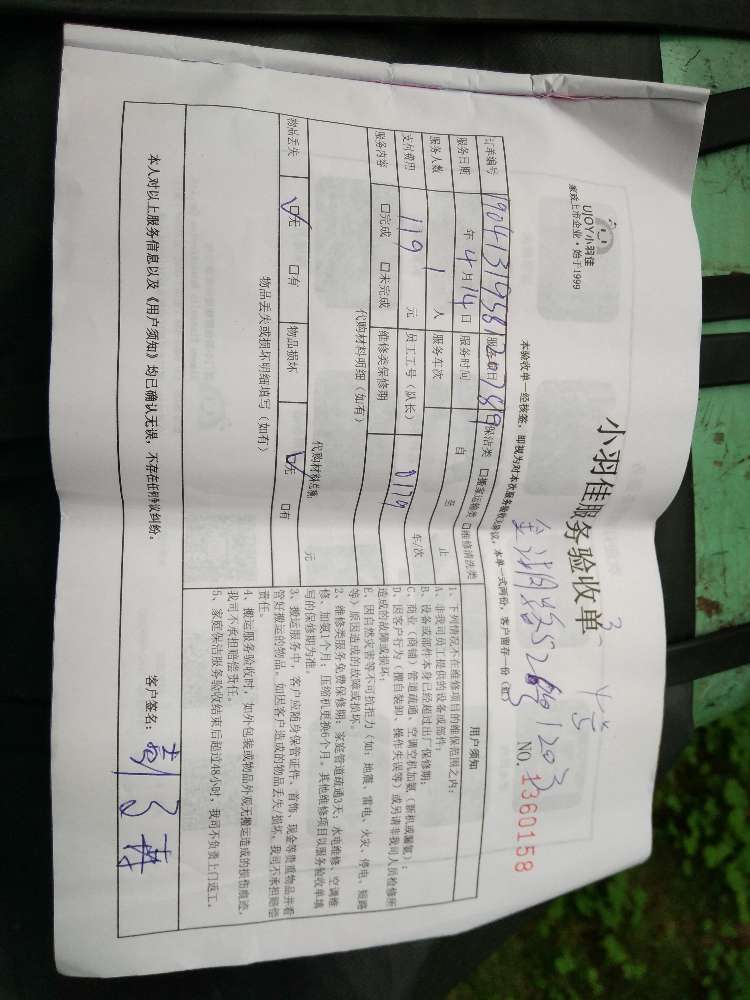 UJOY小羽佳
家政上市企业·始于1999
小羽佳服务验收单
NO. 1360158
本验收单一经核签，即视为对本次服务验收无异议，本单一式两份，客户留存一份（红）
订单编号
服务项目 保洁类 □搬家运输类 □维修清洗类
服务日期 年 4 月 14 日 服务时间 自 至 止
服务人数 1 人 服务车次 车/次
支付费用 119 元 员工工号（队长） 0179
服务内容 □完成 □未完成 维修类保修期
代购材料明细（如有）
代购材料总额 元
物品丢失 □无 □有 物品损坏 □无 □有
物品丢失或损坏明细填写（如有）
用户须知
1、下列情况不在维修项目的维保范围之内：
A、非我司员工提供的设备或部件；
B、设备或部件本身已经超过出厂保修期；
C、商业（商铺）管道疏通、空调空机加氨（新机或漏氨）；
D、因客户行为（擅自装卸、操作失误等）或另请非我司人员检修所
造成的故障或损坏；
E、因自然灾害等不可抗拒力（如：地震、雷电、火灾、停电、短路
等）原因造成的故障或损坏。
2、维修类服务免费保修期：家庭管道疏通3天；水电维修、空调维
修、加氨1个月；压缩机更换6个月。其他维修项目以服务验收单填
写的保修期为准。
3、搬运服务中，客户应随身保管证件、首饰、现金等贵重物品并看
管好搬运的物品。如因客户造成的物品丢失/损坏，我司不承担赔偿
责任。
4、搬运服务验收时，如外包装或物品外观无搬运造成的损伤痕迹，
我司不承担赔偿责任。
5、家庭保洁服务验收结束后超过48小时，我司不负责上门返工。
本人对以上服务信息以及《用户须知》均已确认无误，不存在任何争议纠纷。
客户签名：